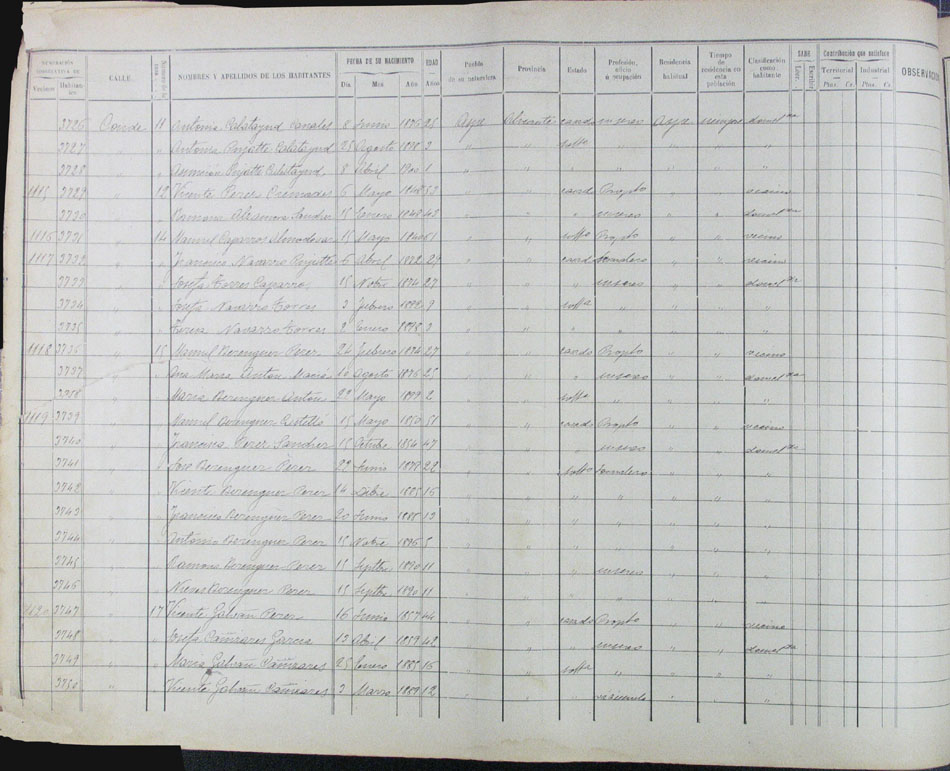 NUMERACIÓN CORRELATIVA DE Vecinos Habitantes CALLE. Número de la casa NOMBRES Y APELLIDOS DE LOS HABITANTES FECHA DE SU NACIMIENTO Día Mes Año EDAD Años Pueblo de su naturaleza Provincia Estado Profesión, oficio u ocupación Residencia habitual Tiempo de residencia en esta población Clasificación como habitante SABE Leer Escribir Contribución que satisface Territorial Ptas. Cs. Industrial Ptas. Cs. OBSERVACI
3726 Conde 11 Antonia Calatayud Canales 8 Junio 1875 26 Aspe Alicante casada su sexo Aspe siempre domcl da
3727 " " Antonia 28 Agosto 1898 2 " " soltª " " " "
3728 " " Asuncion Calatayud 8 Abril 1900 1 " " " " " " "
1115 3729 " 12 Vicente Perez Cremades 6 Mayo 1848 53 " " casdo Propto " " vecino
3730 " " Ramona 15 Enero " " " su sexo " " domcl da
1116 3731 " 14 Manuel Caparros Almodovar 15 Mayo 1840 61 " " soltº Propto " " vecino
1117 3732 " " Francisco Navarro 6 Abril 1872 29 " " casdo Jornalero " " vecino
3733 " " Josefa Torres Caparros 15 Novbre 1874 27 " " " su sexo " " domcl da
3734 " " Josefa Navarro Torres 3 Febrero 1892 9 " " soltª " " " "
3735 " " Teresa Navarro Torres 2 Enero 1898 3 " " " " " " "
1118 3736 " 15 Manuel Berenguer Perez 24 Febrero 1874 27 " " casdo Propto " " vecino
3737 " " Ana Maria Anton Maciá 10 Agosto 1876 25 " " " su sexo " " domcl da
3738 " " Maria Berenguer Anton 22 Mayo 1899 2 " " soltª " " " "
1119 3739 " " Manuel Berenguer 15 Mayo 1850 51 " " casdo Propto " " vecino
3740 " " Francisca Perez Sanchez 15 Octubre 1854 47 " " " su sexo " " domcl da
3741 " " Jose Berenguer Perez 22 Junio 22 " " soltº Jornalero " " "
3742 " " Vicente Berenguer Perez 14 Dcbre 1885 16 " " " " " " "
3743 " " Francisco Berenguer Perez 20 Junio 1888 13 " " " " " " "
3744 " " Antonio Berenguer Perez 15 Nobre 1896 5 " " " " " " "
3745 " " Ramona Berenguer Perez 15 Septbre 1890 11 " " " su sexo " " "
3746 " " Nieves Berenguer Perez 15 Septbre 1890 11 " " " " " " "
1120 3747 " 17 Vicente Galvañ Perez 16 Junio 1857 44 " " casdo Propto " " vecino
3748 " " Josefa Cañizares Garcia 13 Abril 1859 42 " " " su sexo " " domcl da
3749 " " Maria Galvañ Cañizares 25 Enero 1885 16 " " soltª " " " "
3750 " " Vicente Galvañ Cañizares 3 Marzo 1889 12 " " " " " "